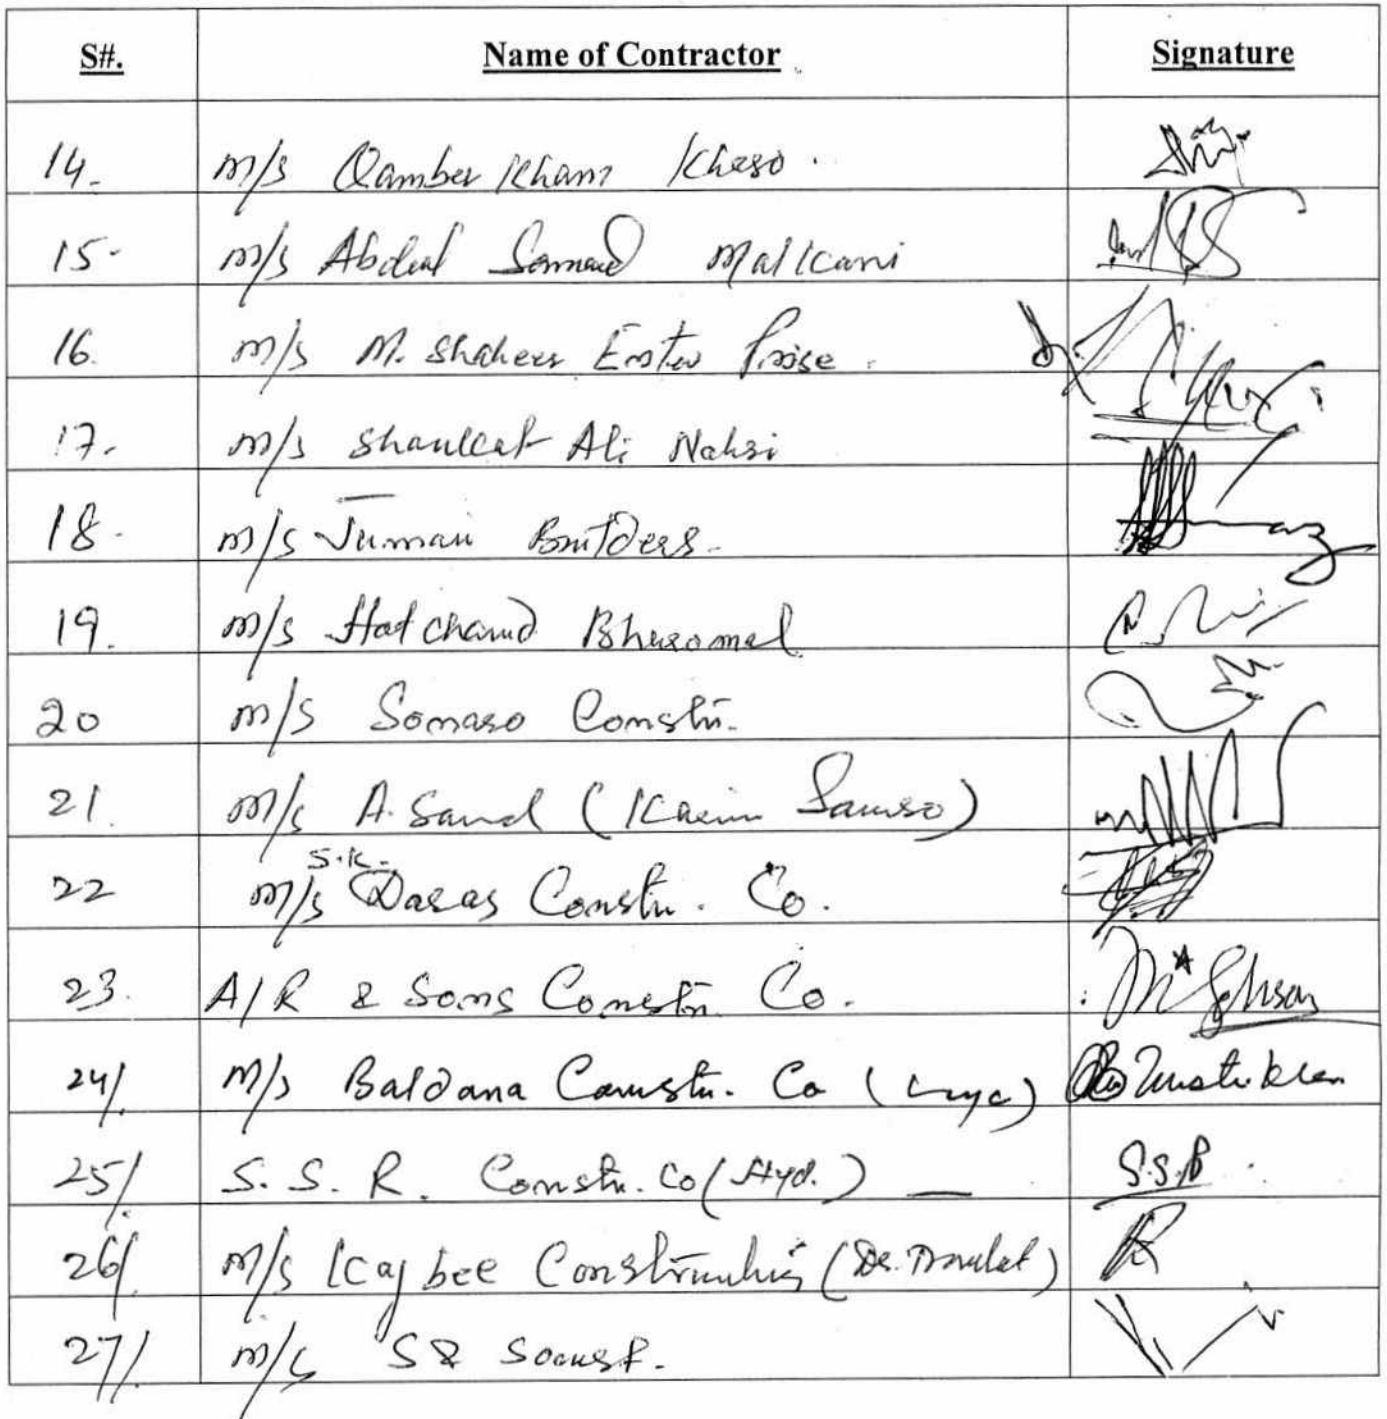 S#. Name of Contractor Signature
14. m/s Qamber Khan Khoso.
15. m/s Abdul Samad Malkani
16. m/s M. Shaheer Enter Prise.
17. m/s Shaukat Ali
18. m/s Jumani Builders.
19. m/s Hotchand Bheromal
20 m/s Somaso Constr.
21. m/s A. Sand (Karim
S.K.
22 m/s Daras Constr. Co.
23. A/R & Sons Constr. Co.
24/. m/s Baldana Constr. Co
25/. S. S. R. Constr. Co (Hyd.) — S.S.R
26/. m/s Kaybee Construction (Dr. Doulat)
27/. m/s S &